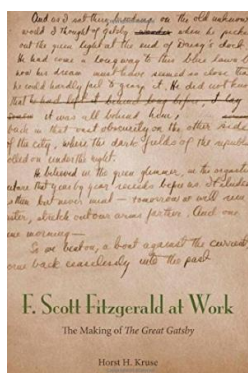 And as I sat there brooding on the old unknown
world I thought of gatsby when he picked
out the green light at the end of Daisy's dock.
He had come a long way to this blue lawn
his dream must have seemed so close
he could hardly fail to grasp it. He did not know
that he had left it behind long before,
it was all behind him,
back in that vast obscurity on the other side
of the city, where the dark fields of the republic
rolled on under the night.
He believed in the green glimmer, in the orgastic
future that year by year recedes before us.
then but never mind — tomorrow we will run
faster, stretch out our arms farther. And one
fine morning —
So we beat on, a boat against the current
borne back ceaselessly into the past
F. Scott Fitzgerald at Work
The Making of The Great Gatsby
Horst H. Kruse